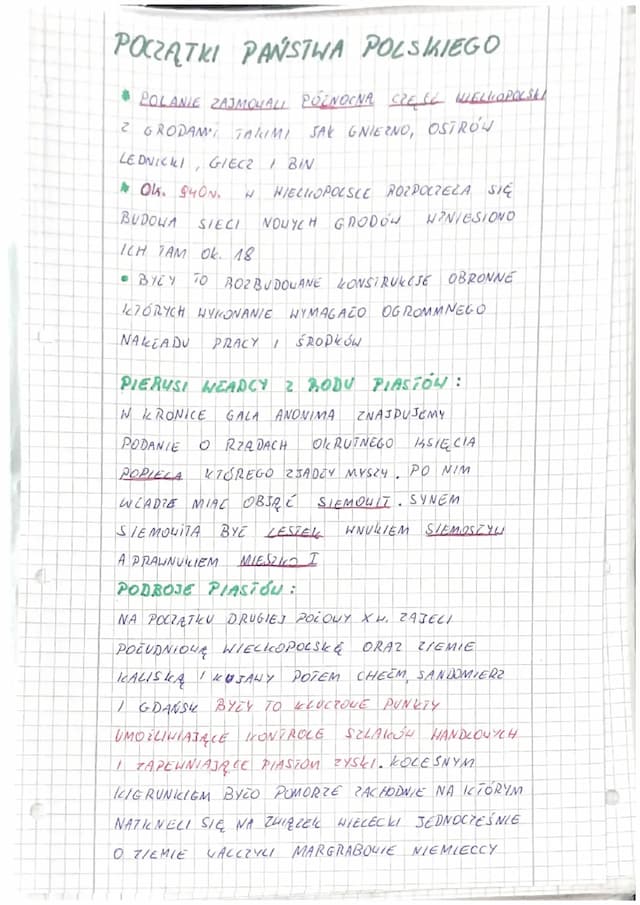 POCZĄTKI PAŃSTWA POLSKIEGO
• POLANIE ZAJMOWALI PÓŁNOCNĄ CZĘŚĆ WIELKOPOLSKI
Z GRODAMI TAKIMI JAK GNIEZNO, OSTRÓW
LEDNICKI, GIECZ I BIN
• OK. 940R. W WIELKOPOLSCE ROZPOCZEŁA SIĘ
BUDOWA SIECI NOWYCH GRODÓW WZNIESIONO
ICH TAM OK. 18
• BYŁY TO ROZBUDOWANE KONSTRUKCJE OBRONNE
KTÓRYCH WYKONANIE WYMAGAŁO OGROMMNEGO
NAKŁADU PRACY I ŚRODKÓW
PIERUSI WŁADCY Z RODU PIASTÓW:
W KRONICE GALA ANONIMA ZNAJDUJEMY
PODANIE O RZĄDACH OKRUTNEGO KSIĘCIA
POPIELA KTÓREGO ZJADŁY MYSZY. PO NIM
WŁADZE MIAŁ OBJĄĆ SIEMOWIT. SYNEM
SIEMOWITA BYŁ LESTEK WNUKIEM SIEMOSZYW
A PRAWNUKIEM MIESZKO I
PODBOJE PIASTÓW:
NA POCZĄTKU DRUGIEJ POŁOWY X W. ZAJELI
POŁUDNIOWĄ WIELKOPOLSKĘ ORAZ ZIEMIE
KALISKĄ I KUJAWY POTEM CHEŁM, SANDOMIERZ
I GDAŃSK BYŁY TO KLUCZOWE PUNKTY
UMOŻLIWIAJĄCE KONTROLE SZLAKÓW HANDLOWYCH
I ZAPEWNIAJĄCE PIASTOM ZYSKI. KOLEŚNYM
KIERUNKIEM BYŁO POMORZE ZACHODNIE NA KTÓRYM
NATKNELI SIĘ NA ZWIĄZEK WIELECKI JEDNOCZEŚNIE
O ZIEMIE WALCZYLI MARGRABOWIE NIEMIECCY